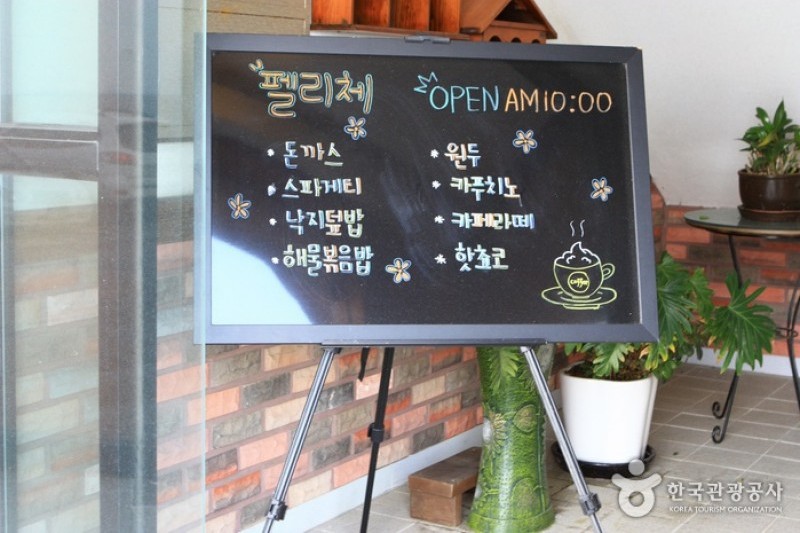 펠리체 OPEN AM10:00
• 돈까스
• 스파게티
• 낙지덮밥
• 해물볶음밥
• 원두
• 카푸치노
• 카페라떼
• 핫쵸코
coffee
한국관광공사
KOREA TOURISM ORGANIZATION